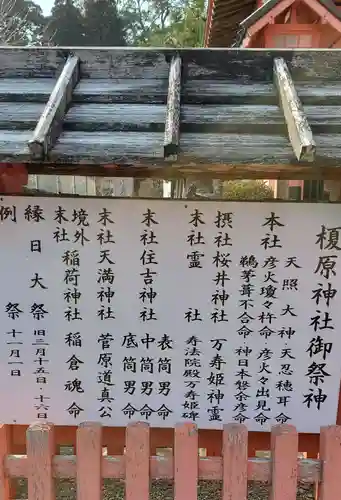 榎原神社御祭神
本社
天照大神 天忍穂耳命
彦火瓊々杵命 彦火々出見命
鵜茅葺不合命 神日本磐余命
摂社 桜井神社 万寿姫神霊
末社 霊社 寿法院殿万寿姫碑
末社 住吉神社
表筒男命
中筒男命
底筒男命
末社 天満神社 菅原道真命
境外末社 稲荷神社 稲倉魂命
縁日大祭 旧三月十五日・十六日
例祭 十一月一日